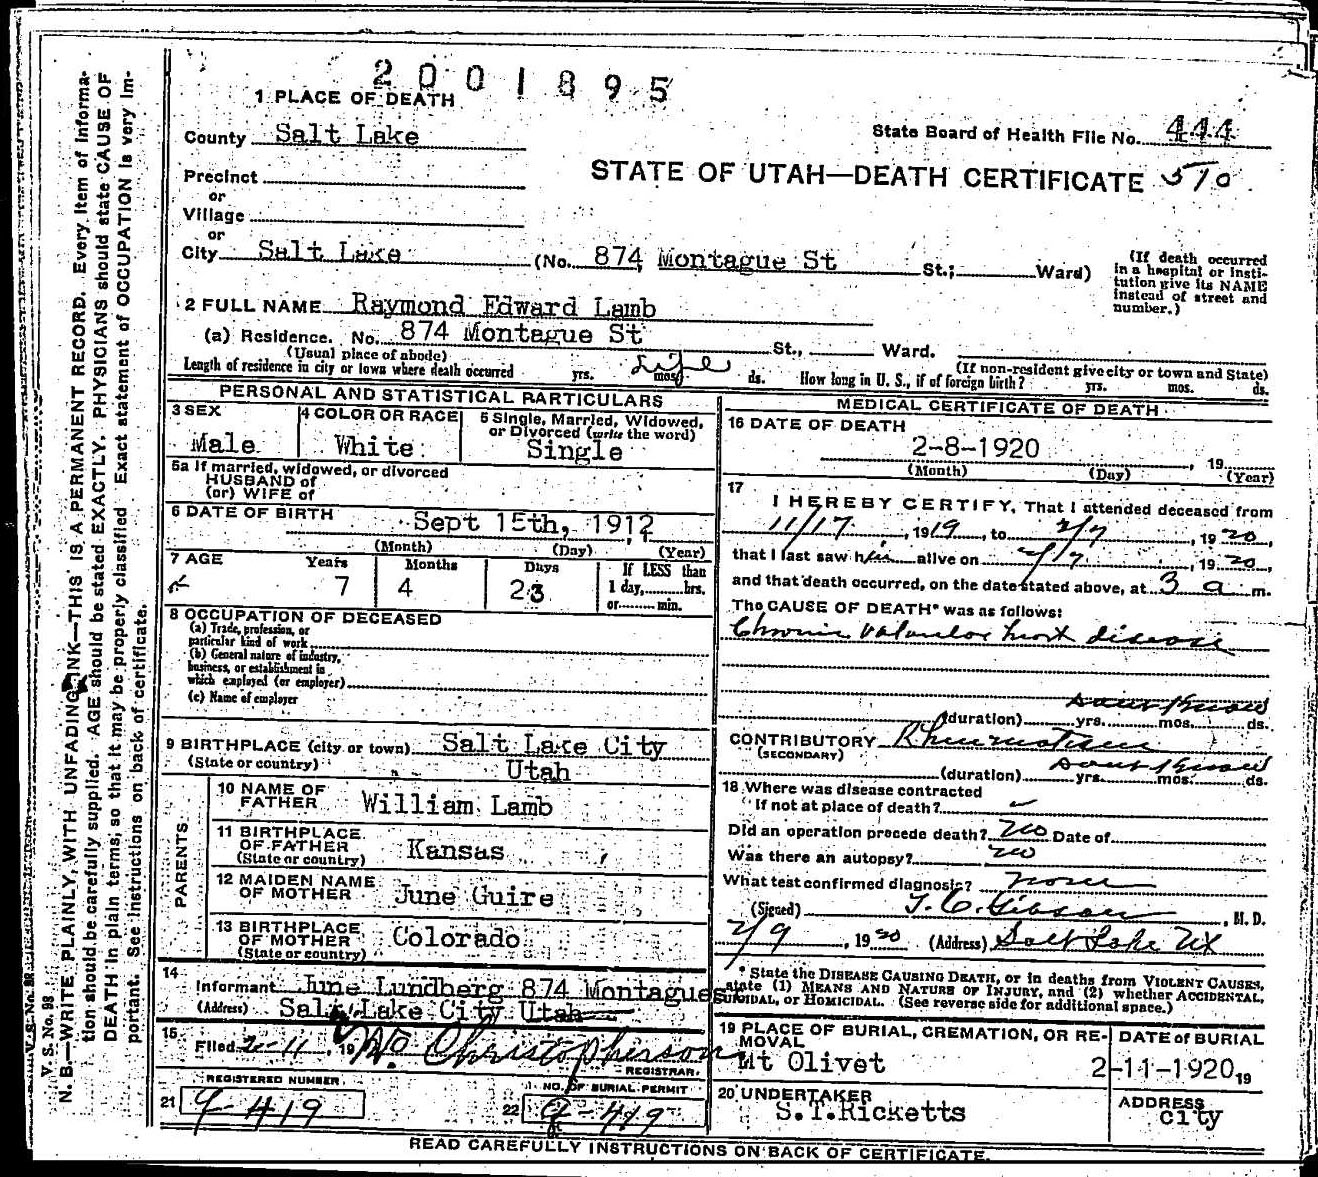 2001895
1 PLACE OF DEATH
County Salt Lake
State Board of Health File No. 444
STATE OF UTAH—DEATH CERTIFICATE 510
Precinct
or
Village
or
City Salt Lake (No. 874 Montague St St.; Ward)
(If death occurred in a hospital or insti-
tution give its NAME
instead of street and
number.)
2 FULL NAME Raymond Edward Lamb
(a) Residence. No. 874 Montague St St., Ward.
(Usual place of abode) (If non-resident give city or town and State)
Length of residence in city or town where death occurred yrs. Life mos. ds. How long in U. S., if of foreign birth? yrs. mos. ds.
PERSONAL AND STATISTICAL PARTICULARS
3 SEX
Male
4 COLOR OR RACE
White
5 Single, Married, Widowed,
or Divorced (write the word)
Single
5a If married, widowed, or divorced
HUSBAND of
(or) WIFE of
6 DATE OF BIRTH
Sept 15th, 1912
(Month) (Day) (Year)
7 AGE Years Months Days If LESS than
7 4 23 1 day, hrs.
or min.
8 OCCUPATION OF DECEASED
(a) Trade, profession, or
particular kind of work
(b) General nature of industry,
business, or establishment in
which employed (or employer)
(c) Name of employer
9 BIRTHPLACE (city or town) Salt Lake City
(State or country) Utah
PARENTS
10 NAME OF
FATHER William Lamb
11 BIRTHPLACE
OF FATHER Kansas
(State or country)
12 MAIDEN NAME
OF MOTHER June Guire
13 BIRTHPLACE
OF MOTHER Colorado
(State or country)
14
Informant June Lundberg 874 Montagues
(Address) Salt Lake City Utah
15
Filed 2-11, 19 Christopherson
REGISTRAR.
REGISTERED NUMBER
21 9-419
NO. OF BURIAL PERMIT
22 9-419
MEDICAL CERTIFICATE OF DEATH
16 DATE OF DEATH
2-8-1920, 19
(Month) (Day) (Year)
17
I HEREBY CERTIFY, That I attended deceased from
11/17, 1919, to 2/7, 1920,
that I last saw him alive on 2/7, 1920,
and that death occurred, on the date stated above, at 3 a m.
The CAUSE OF DEATH* was as follows:
Chronic Valvular heart disease
Dont Know
(duration) yrs. mos. ds.
CONTRIBUTORY Rheumatism
(SECONDARY)
Dont Know
(duration) yrs. mos. ds.
18 Where was disease contracted
If not at place of death?
Did an operation precede death? No Date of
Was there an autopsy? no
What test confirmed diagnosis? none
(Signed) T. C. Gibson, M. D.
2/9, 1920 (Address) Salt Lake Ut
* State the DISEASE CAUSING DEATH, or in deaths from VIOLENT CAUSES,
state (1) MEANS AND NATURE OF INJURY, and (2) whether ACCIDENTAL,
SUICIDAL, or HOMICIDAL. (See reverse side for additional space.)
19 PLACE OF BURIAL, CREMATION, OR RE-
MOVAL
Mt Olivet
DATE of BURIAL
2-11-1920 19
20 UNDERTAKER
S.T.Ricketts
ADDRESS
city
READ CAREFULLY INSTRUCTIONS ON BACK OF CERTIFICATE.
V. S. No. 98
N. B.—WRITE PLAINLY, WITH UNFADING INK—THIS IS A PERMANENT RECORD. Every item of informa-
tion should be carefully supplied. AGE should be stated EXACTLY. PHYSICIANS should state CAUSE OF
DEATH in plain terms, so that it may be properly classified. Exact statement of OCCUPATION is very im-
portant. See instructions on back of certificate.